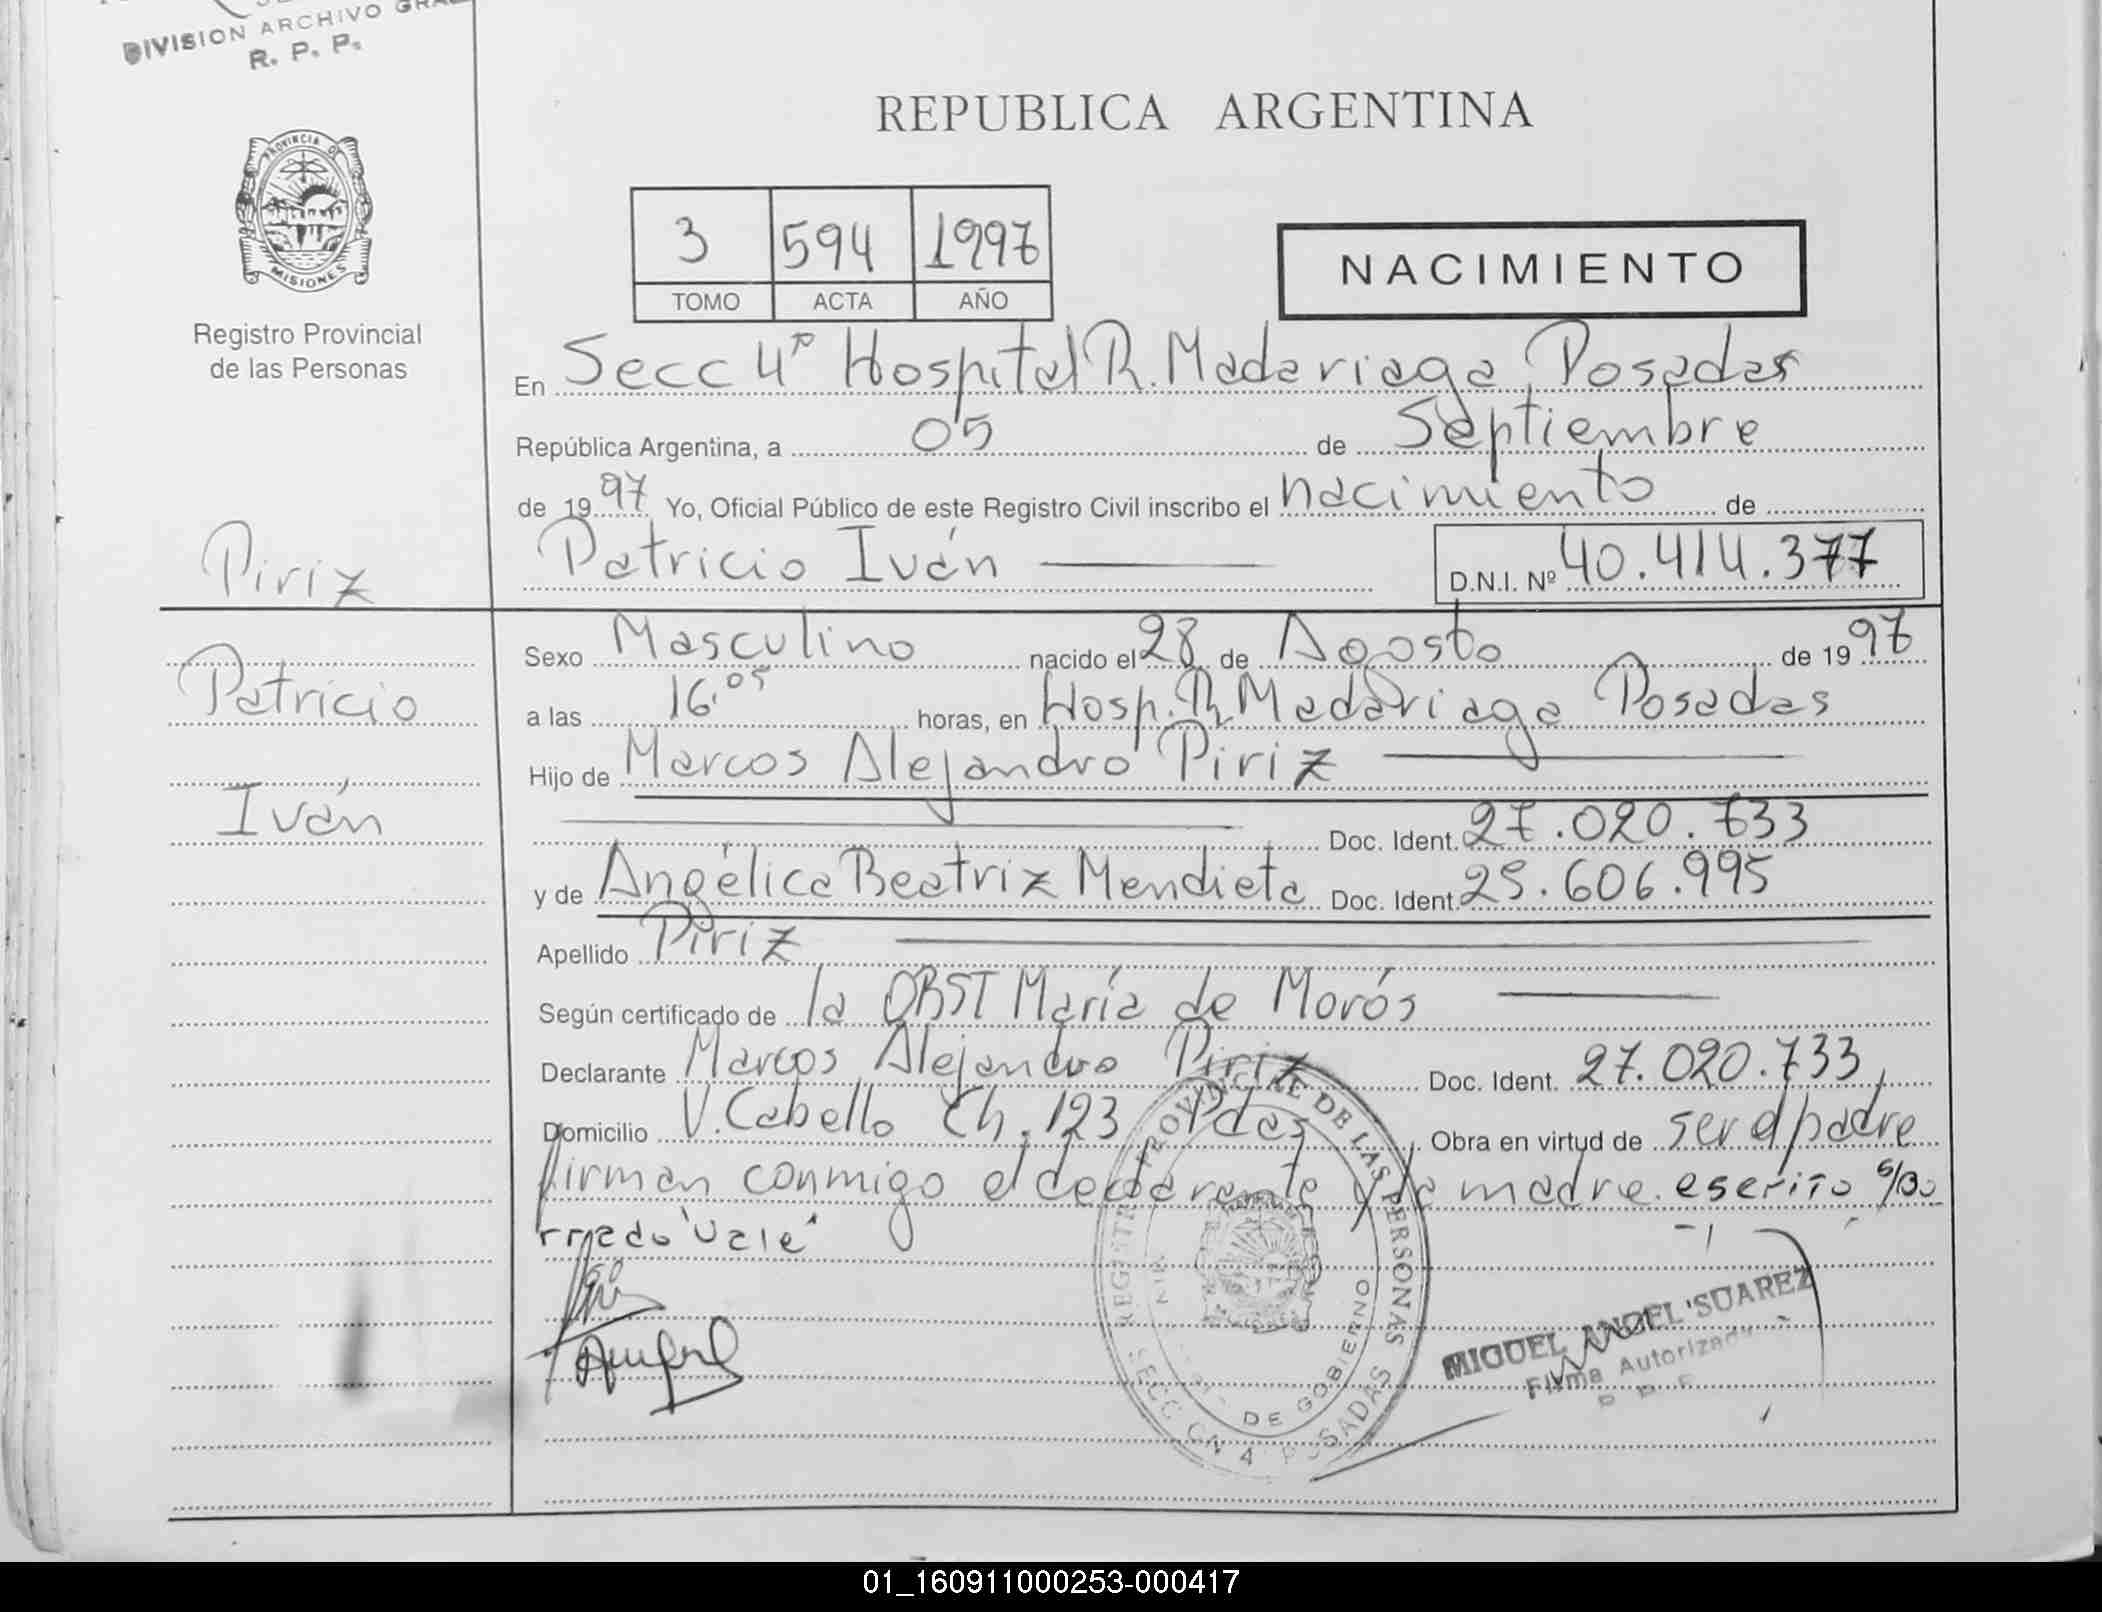 DIVISION ARCHIVO GRAL
R. P. P.
PROVINCIA DE
MISIONES
Registro Provincial
de las Personas
REPUBLICA ARGENTINA
3 594 1997
TOMO ACTA AÑO
NACIMIENTO
En Secc 4º Hospital R. Madariaga, Posadas
República Argentina, a 05 de Septiembre
de 1997 Yo, Oficial Público de este Registro Civil inscribo el nacimiento de
Piriz
Patricio Iván
D.N.I. Nº 40.414.377
Patricio
Iván
Sexo Masculino nacido el 28 de Agosto de 1997
a las 16.05 horas, en Hosp. R. Madariaga Posadas
Hijo de Marcos Alejandro Piriz
Doc. Ident. 27.020.733
y de Angélica Beatriz Mendieta Doc. Ident. 25.606.995
Apellido Piriz
Según certificado de la OBST María de Morós
Declarante Marcos Alejandro Piriz Doc. Ident. 27.020.733
Domicilio V. Cabello Ch. 123 Pdas Obra en virtud de ser el padre
firman conmigo el declarante y la madre. escrito s/bo
rrado "Vale"
REGISTRO PROVINCIAL DE LAS PERSONAS
SECCON 4 POSADAS
DE GOBIERNO
MIGUEL ANGEL SUAREZ
Firma Autorizada
01_160911000253-000417